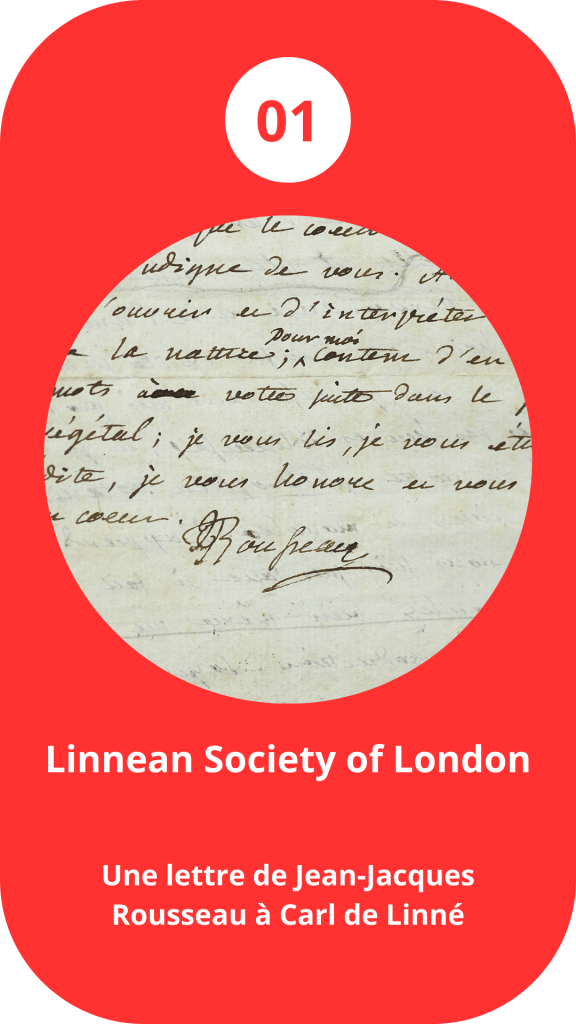 01
que le coeur
indigne de vous. A
ouvrir et d'interpréter
Pour moi
la nature ; ^ Content d'en
mots votre suitte dans le
végétal ; je vous lis, je vous étu
dite, je vous honore et vous
coeur.
JJRousseau
Linnean Society of London
Une lettre de Jean-Jacques
Rousseau à Carl de Linné